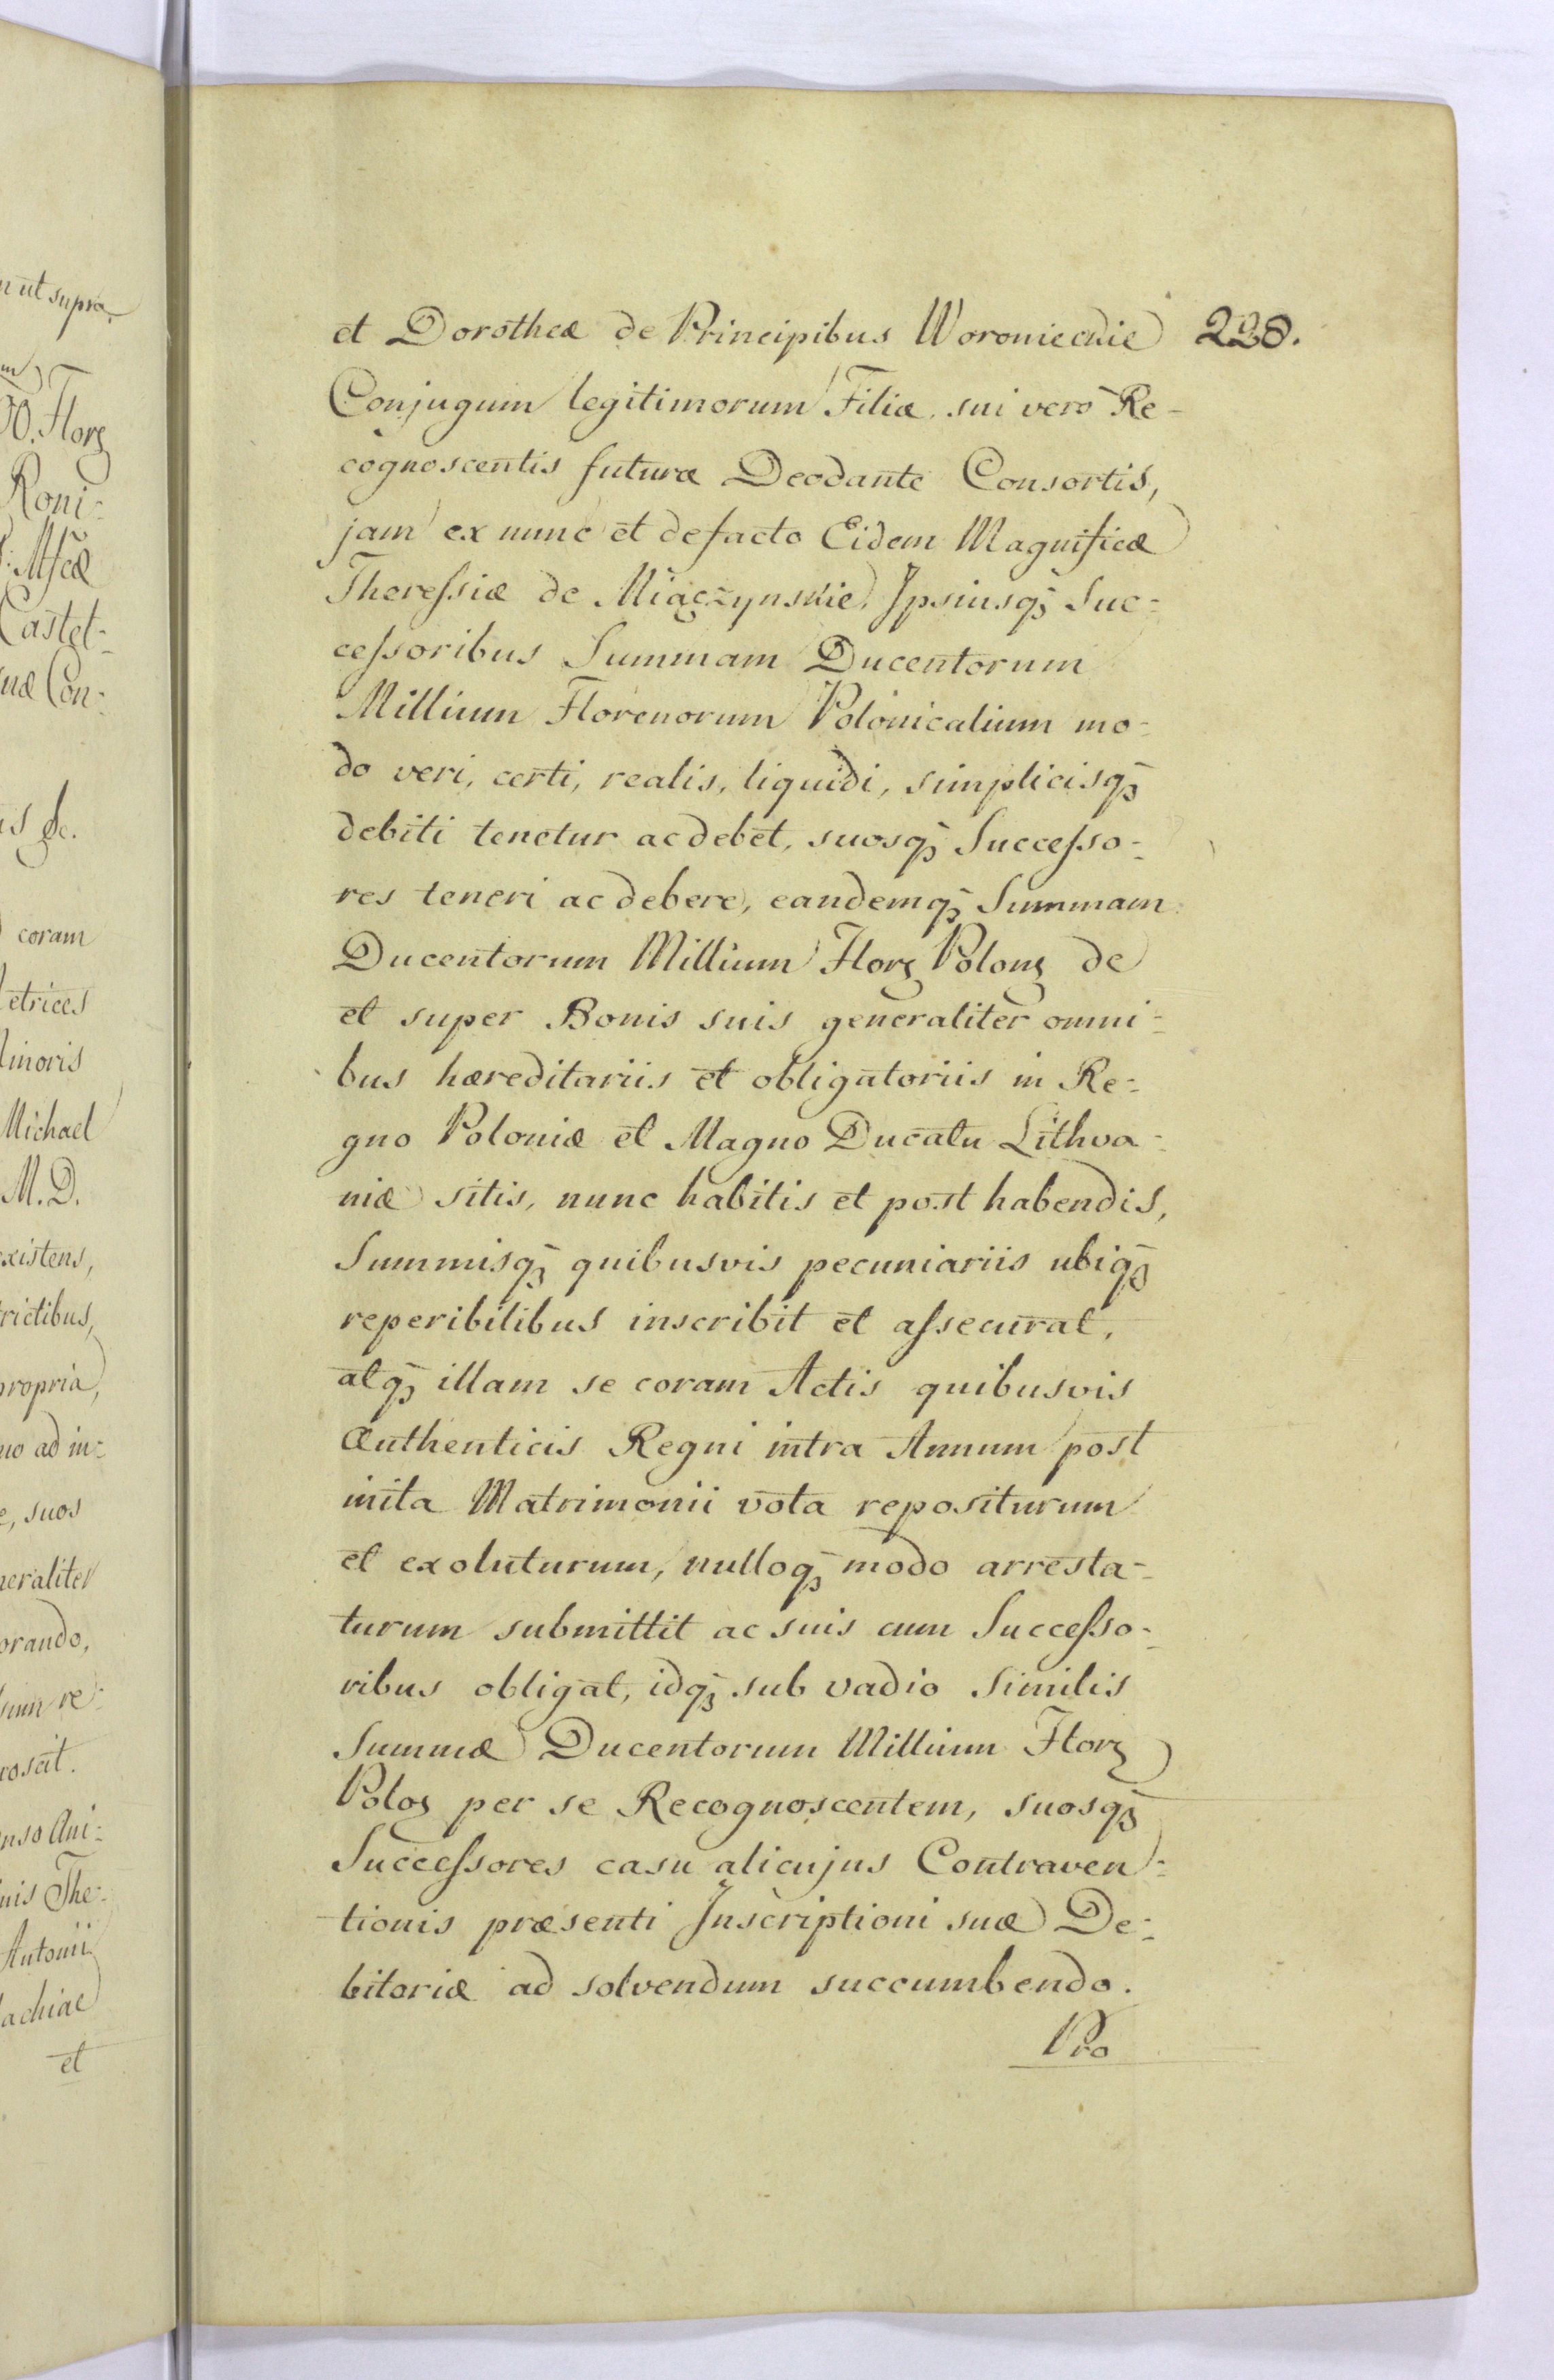 et Dorotheæ de Principibus Woronieckie 228.
Conjugum legitimorum Filiæ, sui vero Re-
cognoscentis futuræ Deodante Consortis,
jam ex nunc et de facto Eidem Magnificæ
Theressiæ de Miączynskie, Ipsiusq̃ Suc-
cessoribus Summam Ducentorum
Millium Florenorum Polonicalium mo-
do veri, certi, realis, liquidi, simplicisq̃
debiti tenetur ac debet, suosq̃ Successo-
res teneri ac debere, eandemq̃ Summam
Ducentorum Millium Flor: Polon: de
et super Bonis suis generaliter omni-
bus hæreditariis et obligatoriis in Re-
gno Poloniæ et Magno Ducatu Lithva-
niæ sitis, nunc habitis et post habendis,
Summisq̃ quibusvis pecuniariis ubiq̃
reperibilibus inscribit et assecurat,
atq̃ illam se coram Actis quibusvis
Authenticis Regni intra Annum post
inita Matrimonii vota repositurum
et exoluturum, nulloq̃ modo arresta-
turum submittit ac suis cum Successo-
ribus obligat, idq̃ sub vadio similis
Summæ Ducentorum Millium Flor:
Polo: per se Recognoscentem, suosq̃
Successores casu alicujus Contraven-
tionis præsenti Inscriptioni suæ De-
bitoriæ ad solvendum succumbendo.
Pro
ut supra,
Flor:
Roni-
Castel-
Con-
coram
Michael
M. D.
propria,
ad in-
suos
Ani-
The-
Antonii
et